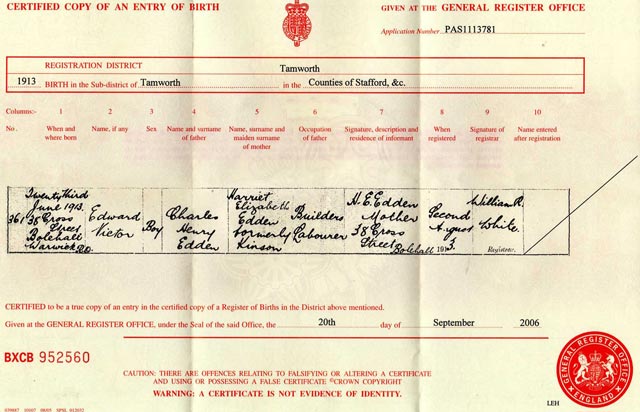 CERTIFIED COPY OF AN ENTRY OF BIRTH
GIVEN AT THE GENERAL REGISTER OFFICE
Application Number PAS1113781
REGISTRATION DISTRICT Tamworth
1913 BIRTH in the Sub-district of Tamworth in the Counties of Stafford, &c.
Columns:- 1 2 3 4 5 6 7 8 9 10
No. When and where born Name, if any Sex Name and surname of father Name, surname and maiden surname of mother Occupation of father Signature, description and residence of informant When registered Signature of registrar Name entered after registration
361
Twenty third
June 1913
38 Cross
Street
Bolehall
Warwick R.D.
Edward
Victor
Boy
Charles
Henry
Edden
Harriet
Elizabeth
Edden
formerly
Kinson
Builders
Labourer
H. E. Edden
Mother
38 Cross
Street
Bolehall
Second
August
1913.
William R.
White
Registrar.
CERTIFIED to be a true copy of an entry in the certified copy of a Register of Births in the District above mentioned.
Given at the GENERAL REGISTER OFFICE, under the Seal of the said Office, the 20th day of September 2006
BXCB 952560
CAUTION: THERE ARE OFFENCES RELATING TO FALSIFYING OR ALTERING A CERTIFICATE
AND USING OR POSSESSING A FALSE CERTIFICATE ©CROWN COPYRIGHT
WARNING: A CERTIFICATE IS NOT EVIDENCE OF IDENTITY.
GENERAL REGISTER OFFICE
ENGLAND
LEH